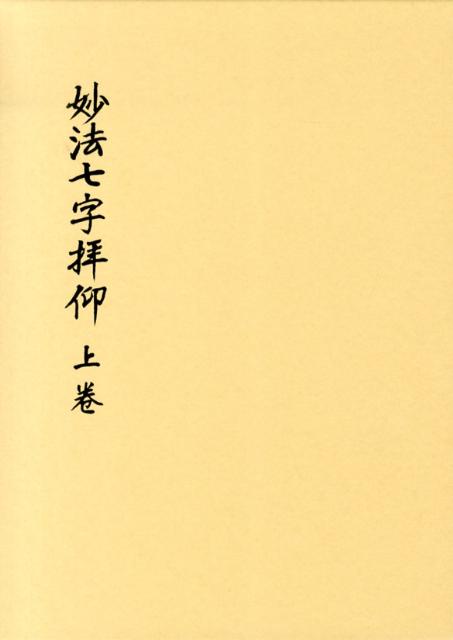 妙法七字拝仰 上巻